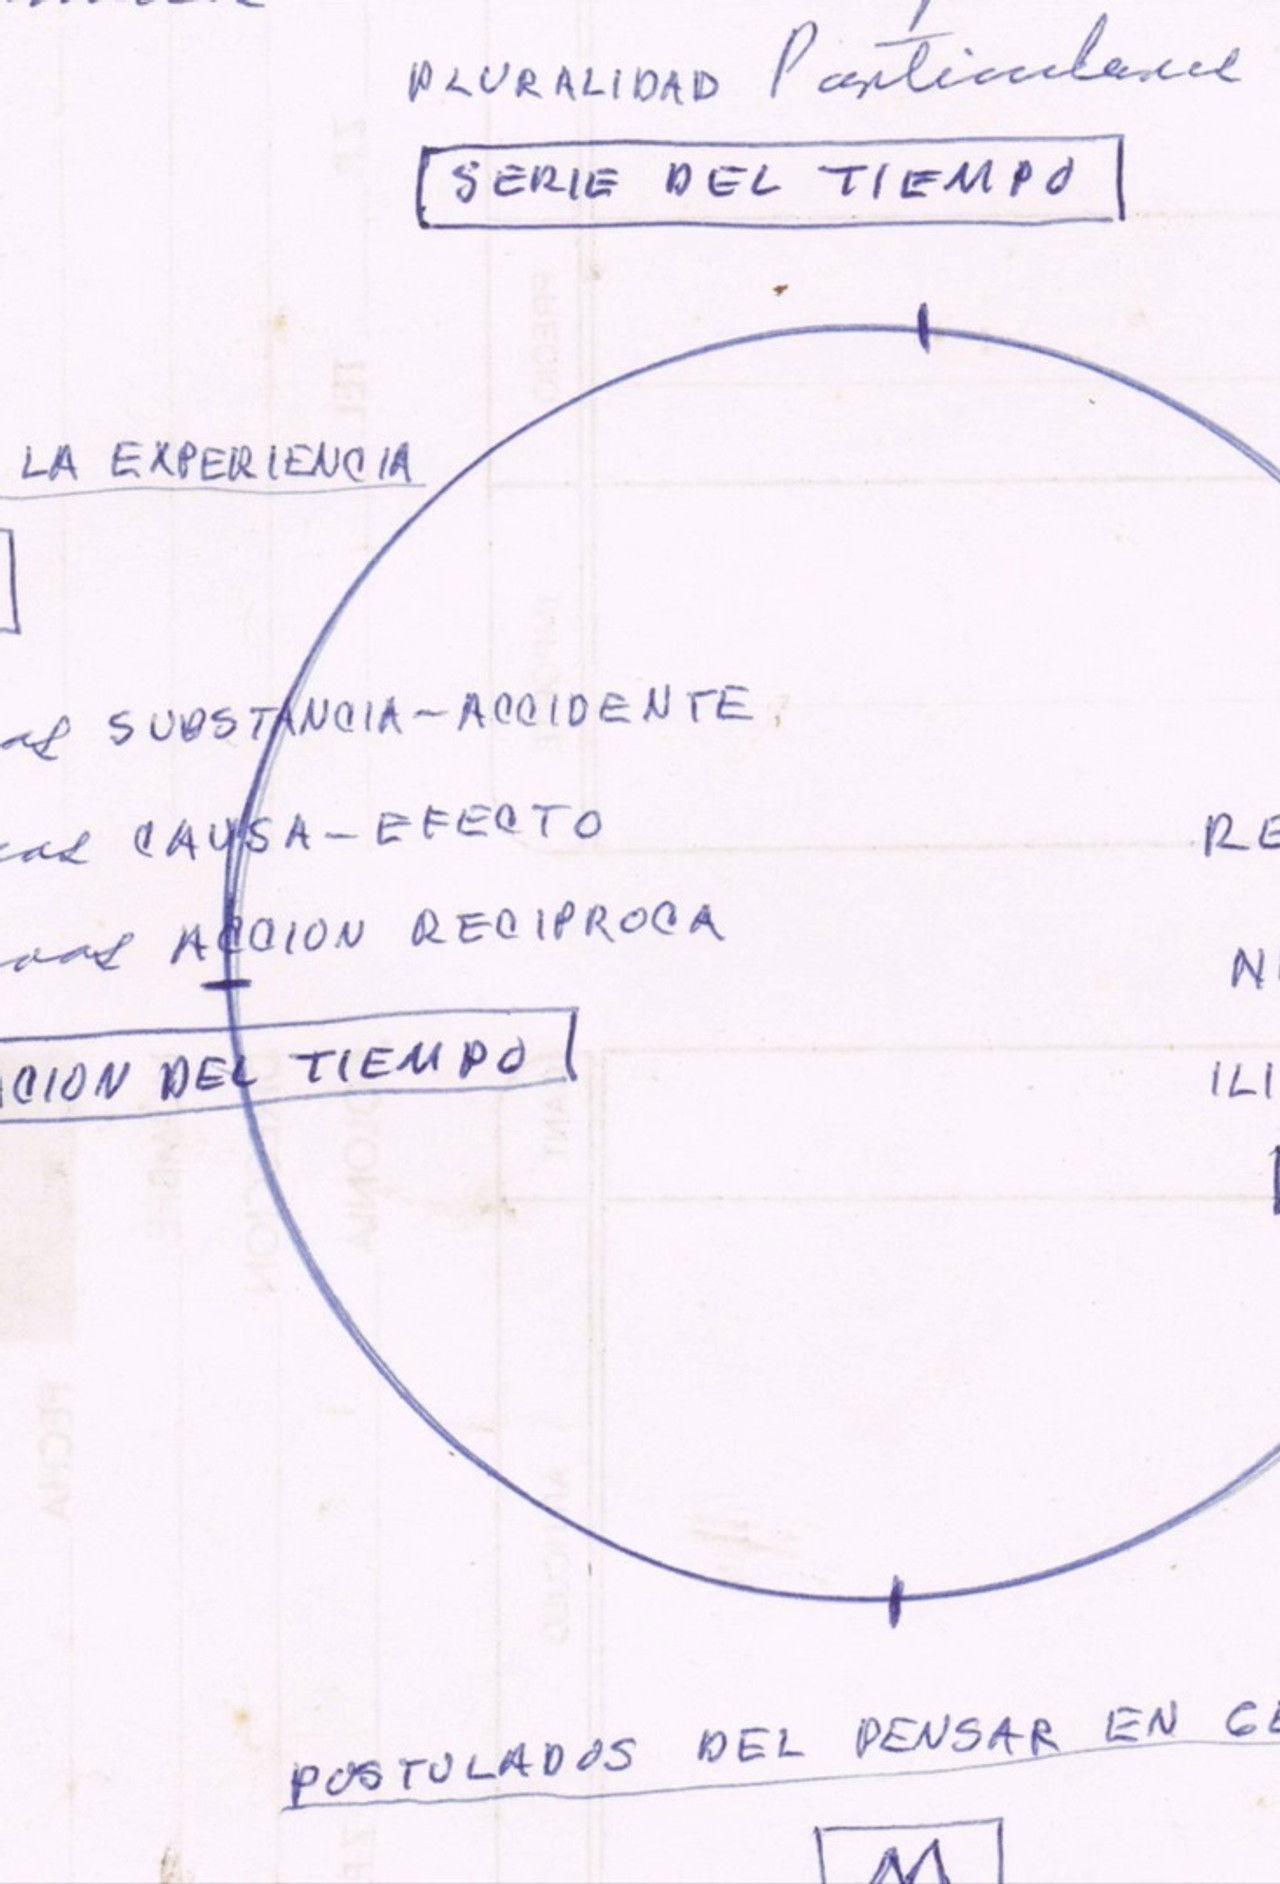 PLURALIDAD Particulares
SERIE DEL TIEMPO
LA EXPERIENCIA
SUBSTANCIA-ACCIDENTE
CAUSA-EFECTO
RE
ACCION RECIPROCA
NI
CION DEL TIEMPO
ILI
POSTULADOS DEL PENSAR EN GE
M